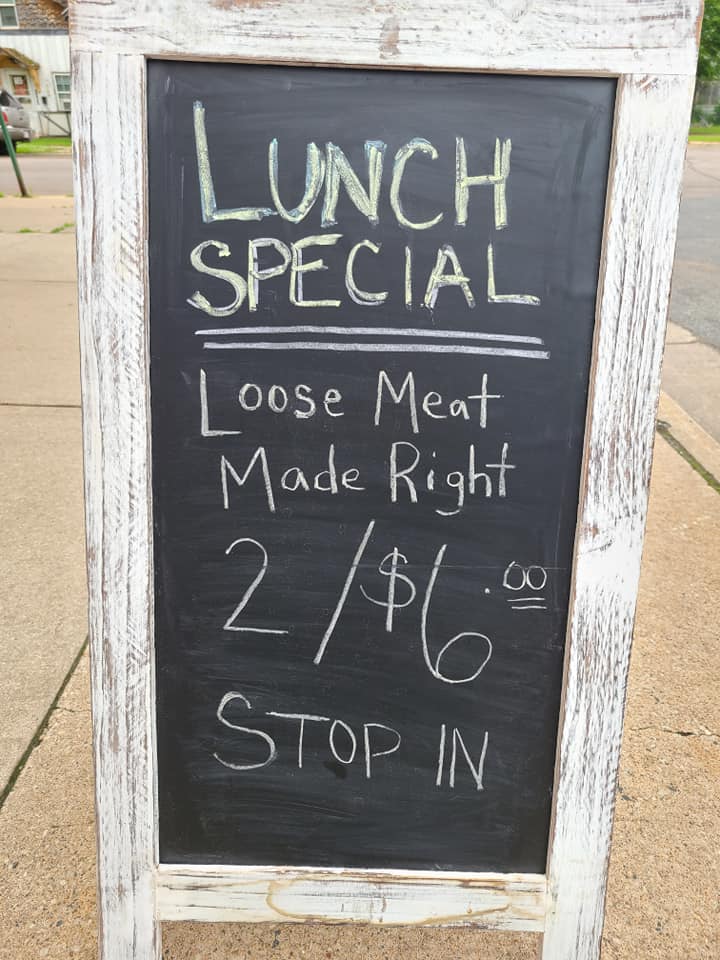 LUNCH
SPECIAL
Loose Meat
Made Right
2/$6.00
STOP IN